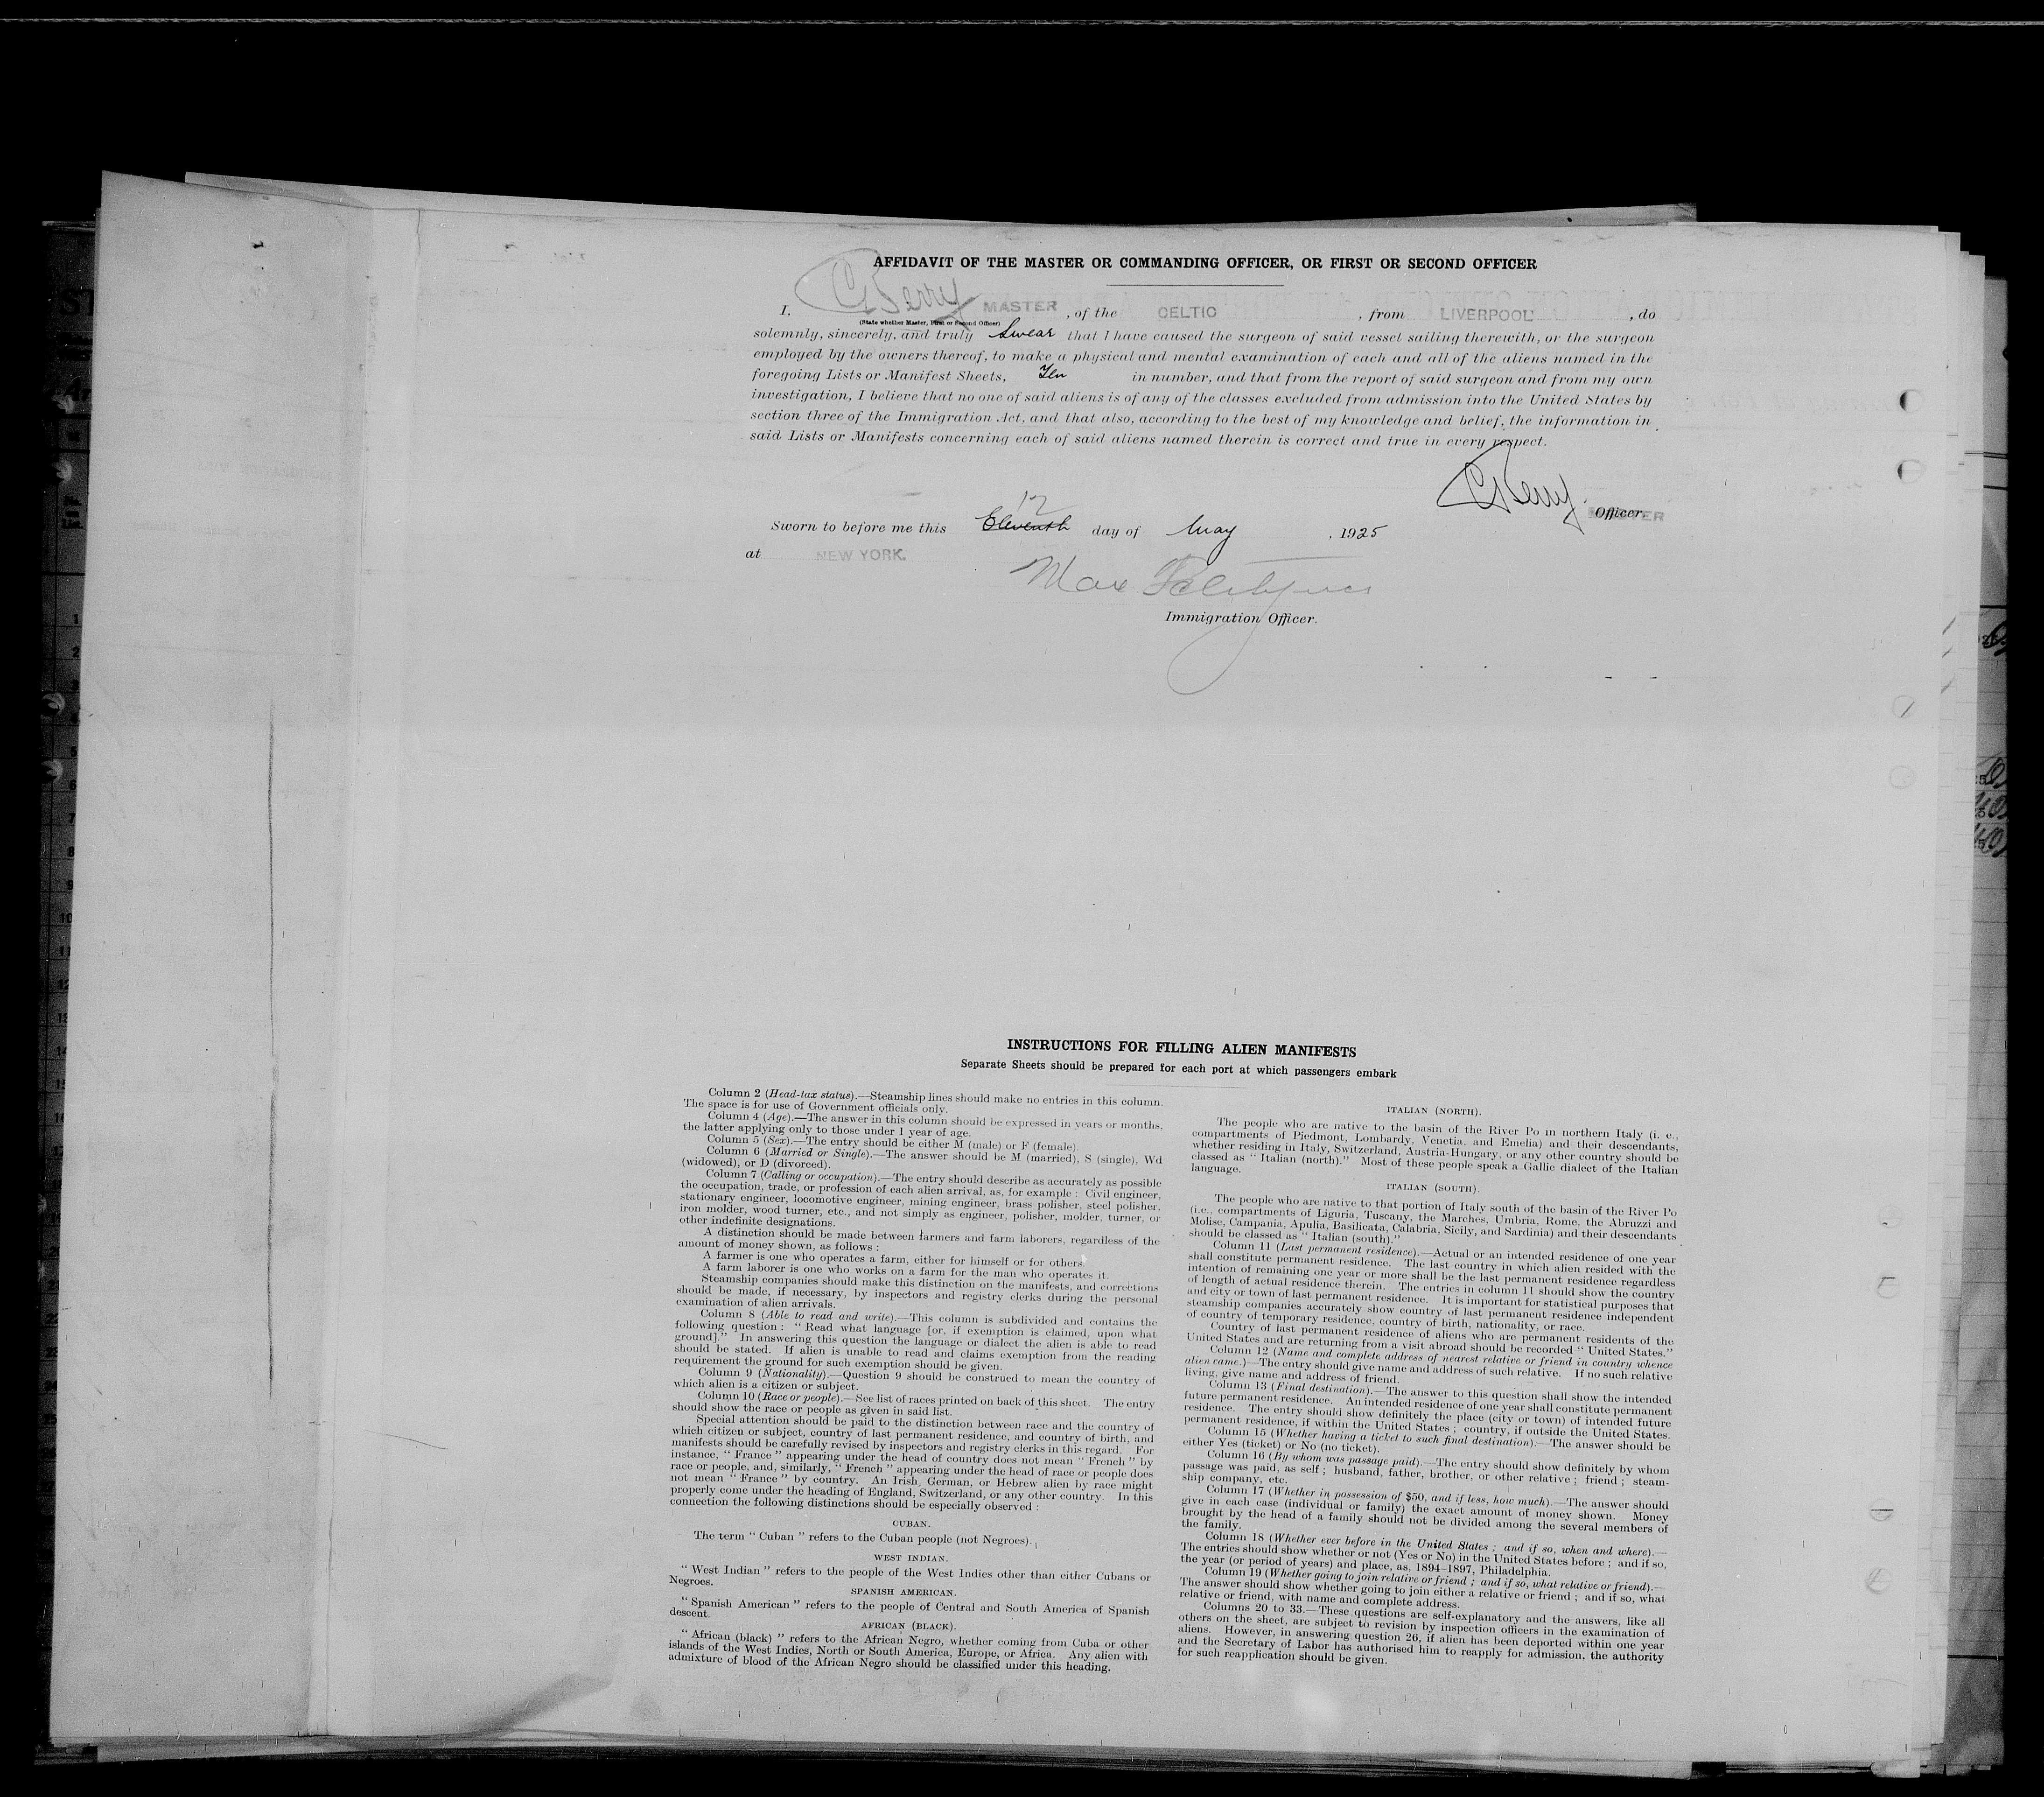 AFFIDAVIT OF THE MASTER OR COMMANDING OFFICER, OR FIRST OR SECOND OFFICER
I, C Berry MASTER , of the CELTIC , from LIVERPOOL , do
(State whether Master, First or Second Officer)
solemnly, sincerely, and truly Swear that I have caused the surgeon of said vessel sailing therewith, or the surgeon
employed by the owners thereof, to make a physical and mental examination of each and all of the aliens named in the
foregoing Lists or Manifest Sheets, Ten in number, and that from the report of said surgeon and from my own
investigation, I believe that no one of said aliens is of any of the classes excluded from admission into the United States by
section three of the Immigration Act, and that also, according to the best of my knowledge and belief, the information in
said Lists or Manifests concerning each of said aliens named therein is correct and true in every respect.
C Berry
Officer.
MASTER
12
Sworn to before me this Eleventh day of May , 1925
at NEW YORK.
Max
Immigration Officer.
INSTRUCTIONS FOR FILLING ALIEN MANIFESTS
Separate Sheets should be prepared for each port at which passengers embark
Column 2 (Head-tax status).—Steamship lines should make no entries in this column.
The space is for use of Government officials only.
Column 4 (Age).—The answer in this column should be expressed in years or months,
the latter applying only to those under 1 year of age.
Column 5 (Sex).—The entry should be either M (male) or F (female).
Column 6 (Married or Single).—The answer should be M (married), S (single), Wd
(widowed), or D (divorced).
Column 7 (Calling or occupation).—The entry should describe as accurately as possible
the occupation, trade, or profession of each alien arrival, as, for example : Civil engineer,
stationary engineer, locomotive engineer, mining engineer, brass polisher, steel polisher,
iron molder, wood turner, etc., and not simply as engineer, polisher, molder, turner, or
other indefinite designations.
A distinction should be made between farmers and farm laborers, regardless of the
amount of money shown, as follows :
A farmer is one who operates a farm, either for himself or for others.
A farm laborer is one who works on a farm for the man who operates it.
Steamship companies should make this distinction on the manifests, and corrections
should be made, if necessary, by inspectors and registry clerks during the personal
examination of alien arrivals.
Column 8 (Able to read and write).—This column is subdivided and contains the
following question : “ Read what language [or, if exemption is claimed, upon what
ground].” In answering this question the language or dialect the alien is able to read
should be stated. If alien is unable to read and claims exemption from the reading
requirement the ground for such exemption should be given.
Column 9 (Nationality).—Question 9 should be construed to mean the country of
which alien is a citizen or subject.
Column 10 (Race or people).—See list of races printed on back of this sheet. The entry
should show the race or people as given in said list.
Special attention should be paid to the distinction between race and the country of
which citizen or subject, country of last permanent residence, and country of birth, and
manifests should be carefully revised by inspectors and registry clerks in this regard. For
instance, “ France ” appearing under the head of country does not mean “ French ” by
race or people, and, similarly, “ French ” appearing under the head of race or people does
not mean “ France ” by country. An Irish, German, or Hebrew alien by race might
properly come under the heading of England, Switzerland, or any other country. In this
connection the following distinctions should be especially observed :
CUBAN.
The term “ Cuban ” refers to the Cuban people (not Negroes).
WEST INDIAN.
“ West Indian ” refers to the people of the West Indies other than either Cubans or
Negroes.
SPANISH AMERICAN.
“ Spanish American ” refers to the people of Central and South America of Spanish
descent.
AFRICAN (BLACK).
“ African (black) ” refers to the African Negro, whether coming from Cuba or other
islands of the West Indies, North or South America, Europe, or Africa. Any alien with
admixture of blood of the African Negro should be classified under this heading.
ITALIAN (NORTH).
The people who are native to the basin of the River Po in northern Italy (i. e.,
compartments of Piedmont, Lombardy, Venetia, and Emelia) and their descendants,
whether residing in Italy, Switzerland, Austria-Hungary, or any other country should be
classed as “ Italian (north).” Most of these people speak a Gallic dialect of the Italian
language.
ITALIAN (SOUTH).
The people who are native to that portion of Italy south of the basin of the River Po
(i.e., compartments of Liguria, Tuscany, the Marches, Umbria, Rome, the Abruzzi and
Molise, Campania, Apulia, Basilicata, Calabria, Sicily, and Sardinia) and their descendants
should be classed as “ Italian (south).”
Column 11 (Last permanent residence).—Actual or an intended residence of one year
shall constitute permanent residence. The last country in which alien resided with the
intention of remaining one year or more shall be the last permanent residence regardless
of length of actual residence therein. The entries in column 11 should show the country
and city or town of last permanent residence. It is important for statistical purposes that
steamship companies accurately show country of last permanent residence independent
of country of temporary residence, country of birth, nationality, or race.
Country of last permanent residence of aliens who are permanent residents of the
United States and are returning from a visit abroad should be recorded “ United States.”
Column 12 (Name and complete address of nearest relative or friend in country whence
alien came.)—The entry should give name and address of such relative. If no such relative
living, give name and address of friend.
Column 13 (Final destination).—The answer to this question shall show the intended
future permanent residence. An intended residence of one year shall constitute permanent
residence. The entry should show definitely the place (city or town) of intended future
permanent residence, if within the United States ; country, if outside the United States.
Column 15 (Whether having a ticket to such final destination).—The answer should be
either Yes (ticket) or No (no ticket).
Column 16 (By whom was passage paid).—The entry should show definitely by whom
passage was paid, as self ; husband, father, brother, or other relative ; friend ; steam-
ship company, etc.
Column 17 (Whether in possession of $50, and if less, how much).—The answer should
give in each case (individual or family) the exact amount of money shown. Money
brought by the head of a family should not be divided among the several members of
the family.
Column 18 (Whether ever before in the United States ; and if so, when and where).—
The entries should show whether or not (Yes or No) in the United States before ; and if so,
the year (or period of years) and place, as, 1894–1897, Philadelphia.
Column 19 (Whether going to join relative or friend ; and if so, what relative or friend).—
The answer should show whether going to join either a relative or friend ; and if so, what
relative or friend, with name and complete address.
Columns 20 to 33.—These questions are self-explanatory and the answers, like all
others on the sheet, are subject to revision by inspection officers in the examination of
aliens. However, in answering question 26, if alien has been deported within one year
and the Secretary of Labor has authorised him to reapply for admission, the authority
for such reapplication should be given.